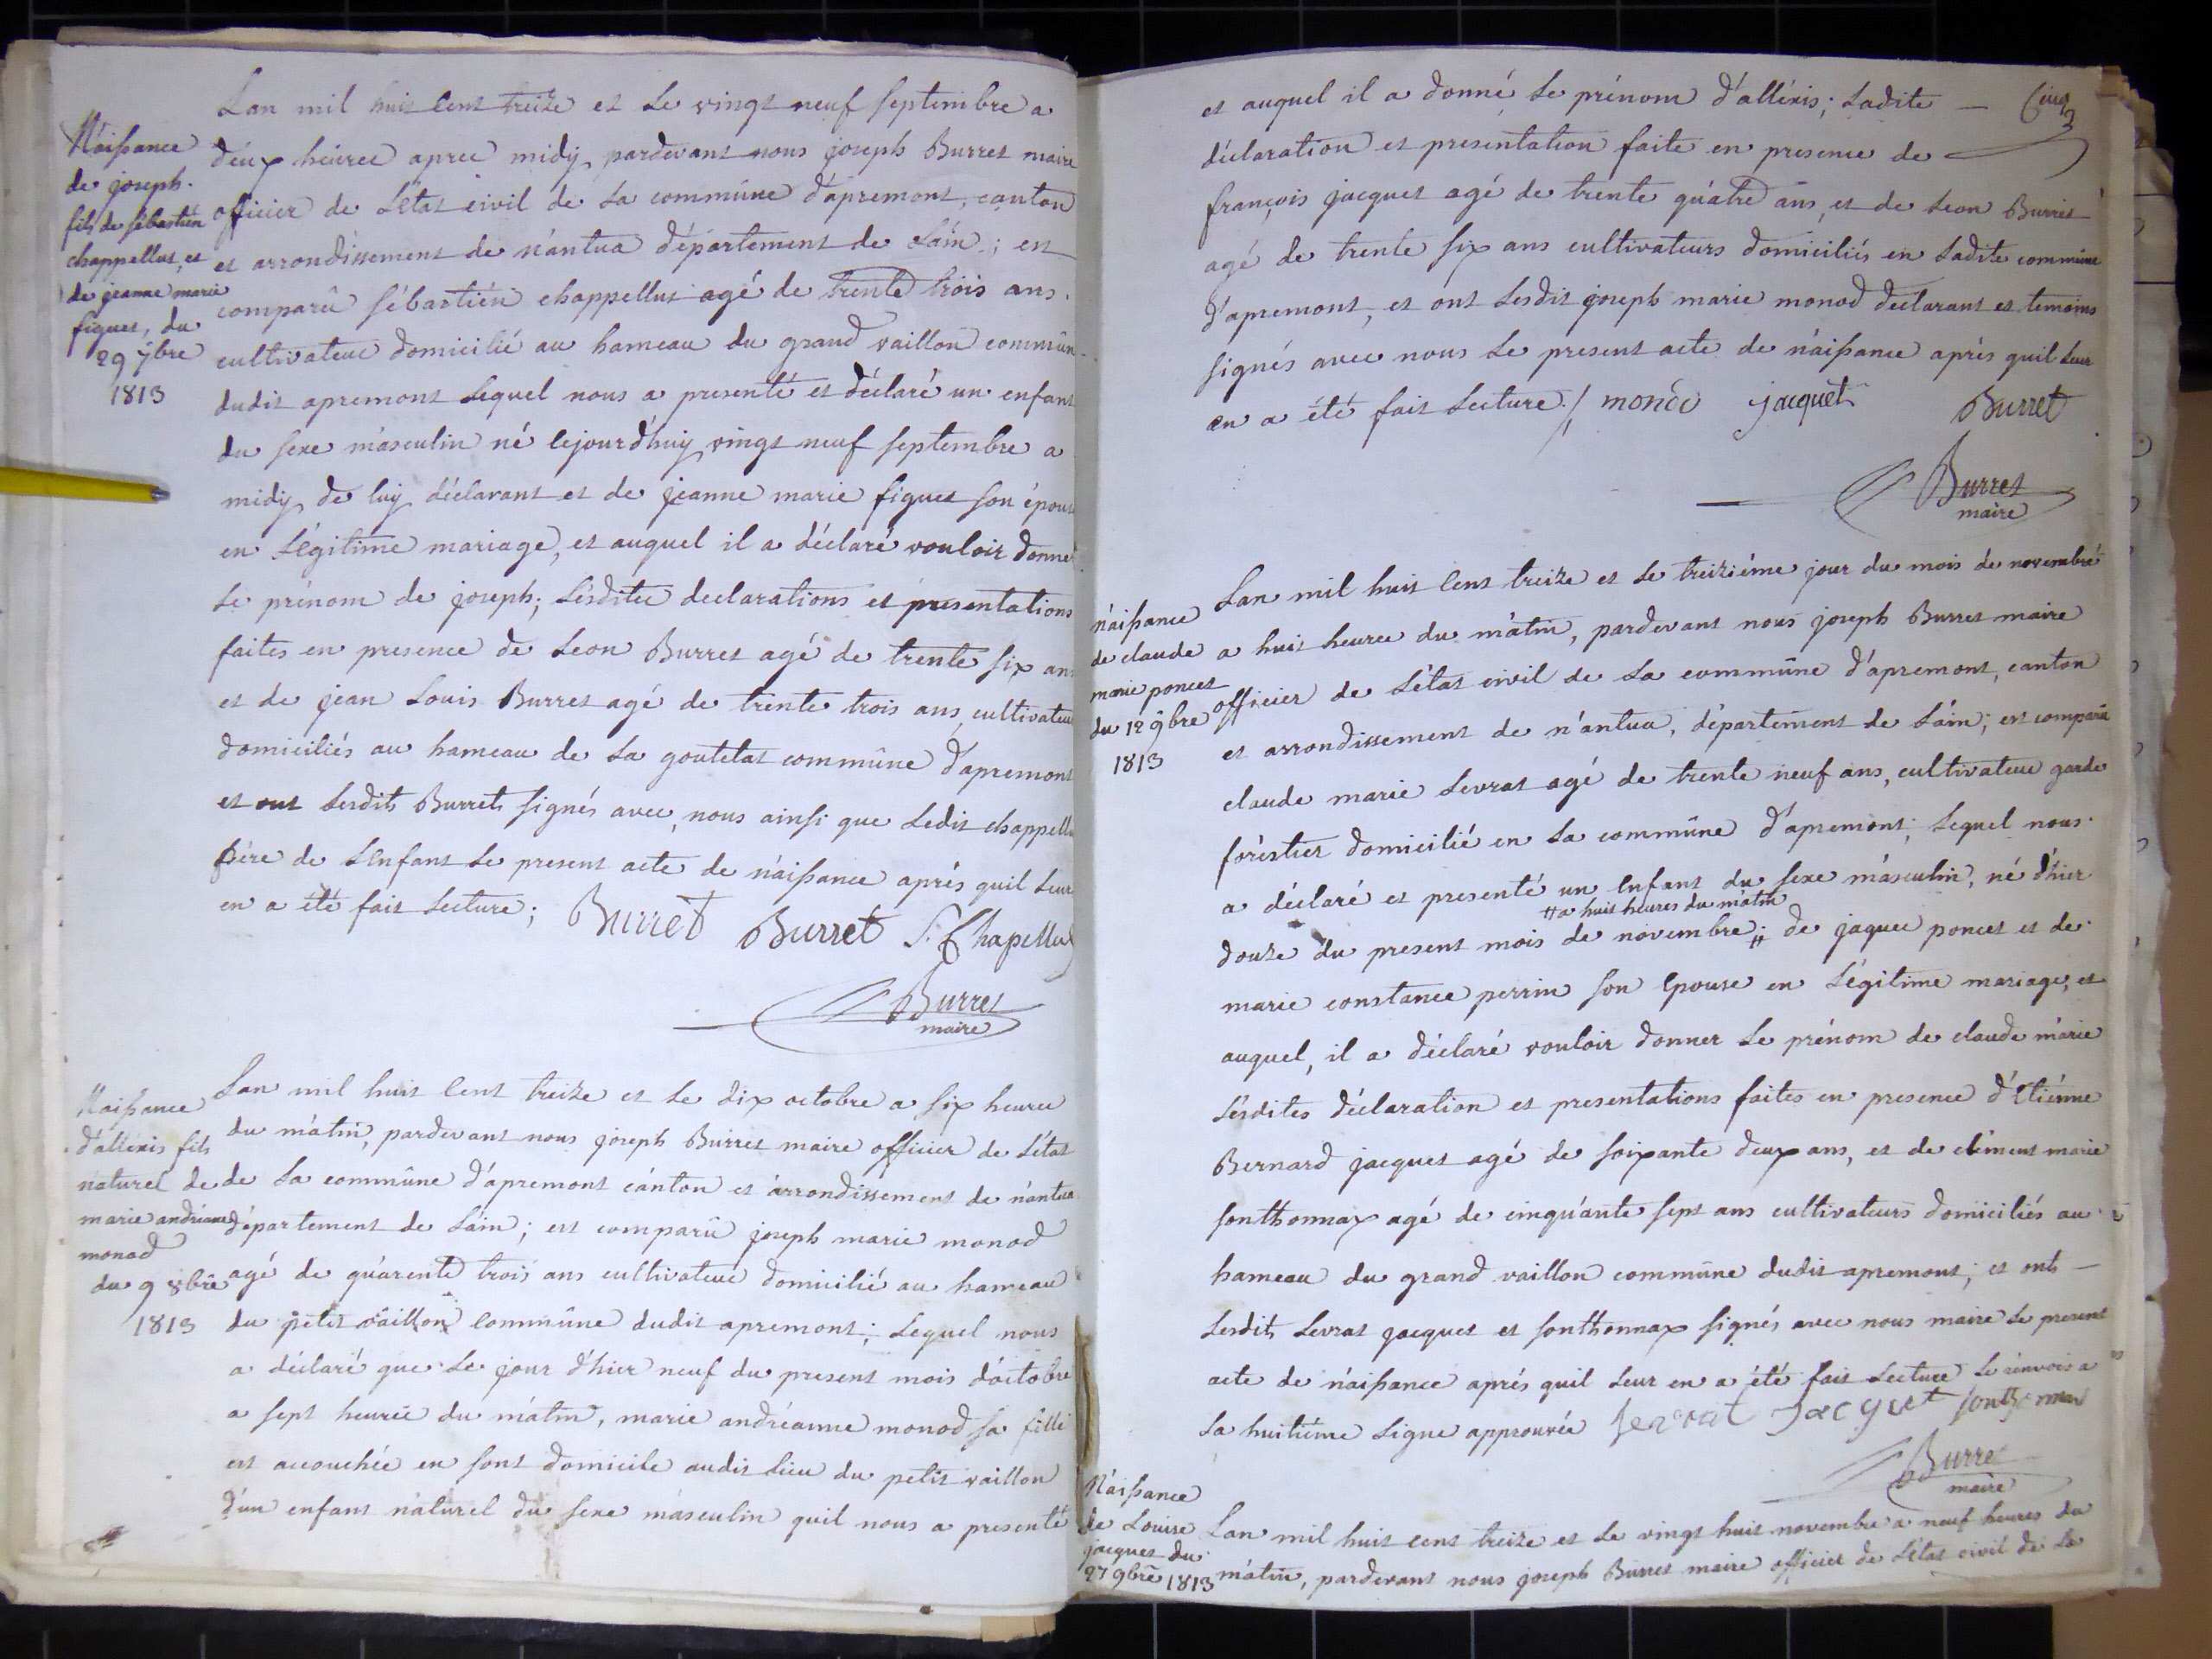 Naissance
de joseph
fils de sébastien
chappellut, et
de jeanne marie
figuet, du
29 7bre
1813
Lan mil huit cent treize et le vingt neuf septembre a
deux heures apres midy, pardevant nous joseph Burret maire
officier de l'état civil de la commune d'apremont, canton
et arrondissement de nantua département de l'ain; est
comparû sébastien chappellut agé de trente trois ans
cultivateur domicilié au hameau du grand vaillon commune
dudit apremont lequel nous a presenté et déclaré un enfant
du sexe masculin né cejourd'huy vingt neuf septembre a
midy, de luy déclarant et de jeanne marie figuet son épouse
en légitime mariage, et auquel il a déclaré vouloir donner
le prénom de joseph; lesdites declarations et presentations
faites en presence de leon Burret agé de trente six ans
et de jean louis Burret agé de trente trois ans, cultivateurs
domiciliés au hameau de la goutetat commune d'apremont
et ont lesdits Burrets signés avec nous ainsi que ledit chappellut
père de l'enfant le present acte de naissance après quil leur
en a été fait lecture; Burret Burret S. Chapellut
Burret
maire
Naissance
d'allexis fils
naturel de
marie andrianne
monod
du 9 8bre
1813
Lan mil huit cent treize et le dix octobre a six heures
du matin, pardevant nous joseph Burret maire officier de l'état
de la commune d'apremont canton et arrondissement de nantua
département de l'ain; est comparû joseph marie monod
agé de quarente trois ans cultivateur domicilié au hameau
du petit vaillon commune dudit apremont; lequel nous
a déclaré que le jour d'hier neuf du present mois d'octobre
a sept heures du matin, marie andréanne monod sa fille
est accouchée en sont domicile audit lieu du petit vaillon
d'un enfant naturel du sexe masculin quil nous a presenté
Cinq
et auquel il a donné le prénom d'allexis; ladite
déclaration et presentation faite en presence de
françois jacquet agé de trente quatre ans, et de leon Burret
agé de trente six ans cultivateurs domiciliés en ladite commune
d'apremont, et ont lesdit joseph marie monod declarant et temoins
signés avec nous le present acte de naissance après quil leur
en a été fait lecture./ monod jacquet Burret
Burret
maire
naissance
de claude
marie poncet
du 12 9bre
1813
Lan mil huit cent treize et le treizième jour du mois de novembre
a huit heures du matin, pardevant nous joseph Burret maire
officier de l'état civil de la commune d'apremont, canton
et arrondissement de nantua, département de l'ain; est comparu
claude marie levrat agé de trente neuf ans, cultivateur garde
forestier domicilié en la commune d'apremont; lequel nous
a déclaré et presenté un enfant du sexe masculin, né d'hier
a huit heures du matin
douze du present mois de novembre; de jaques poncet et de
marie constance perrin son epouse en légitime mariage, et
auquel, il a déclaré vouloir donner le prénom de claude marie
lesdites déclaration et presentations faites en presence d'etienne
Bernard jacquet agé de soixante deux ans, et de clément marie
sonthonnax agé de cinquante sept ans cultivateurs domiciliés au
hameau du grand vaillon commune dudit apremont; et ont
lesdits levrat jacquet et sonthonnax signés avec nous maire le present
acte de naissance après quil leur en a été fait lecture le renvois a
la huitième ligne approuvée levrat jacquet sonthonnax
Burret
maire
Naissance
de Louise
jacquet du
27 9bre 1813
Lan mil huit cent treize et le vingt huit novembre a neuf heures du
matin, pardevant nous joseph Burret maire officier de l'état civil de la